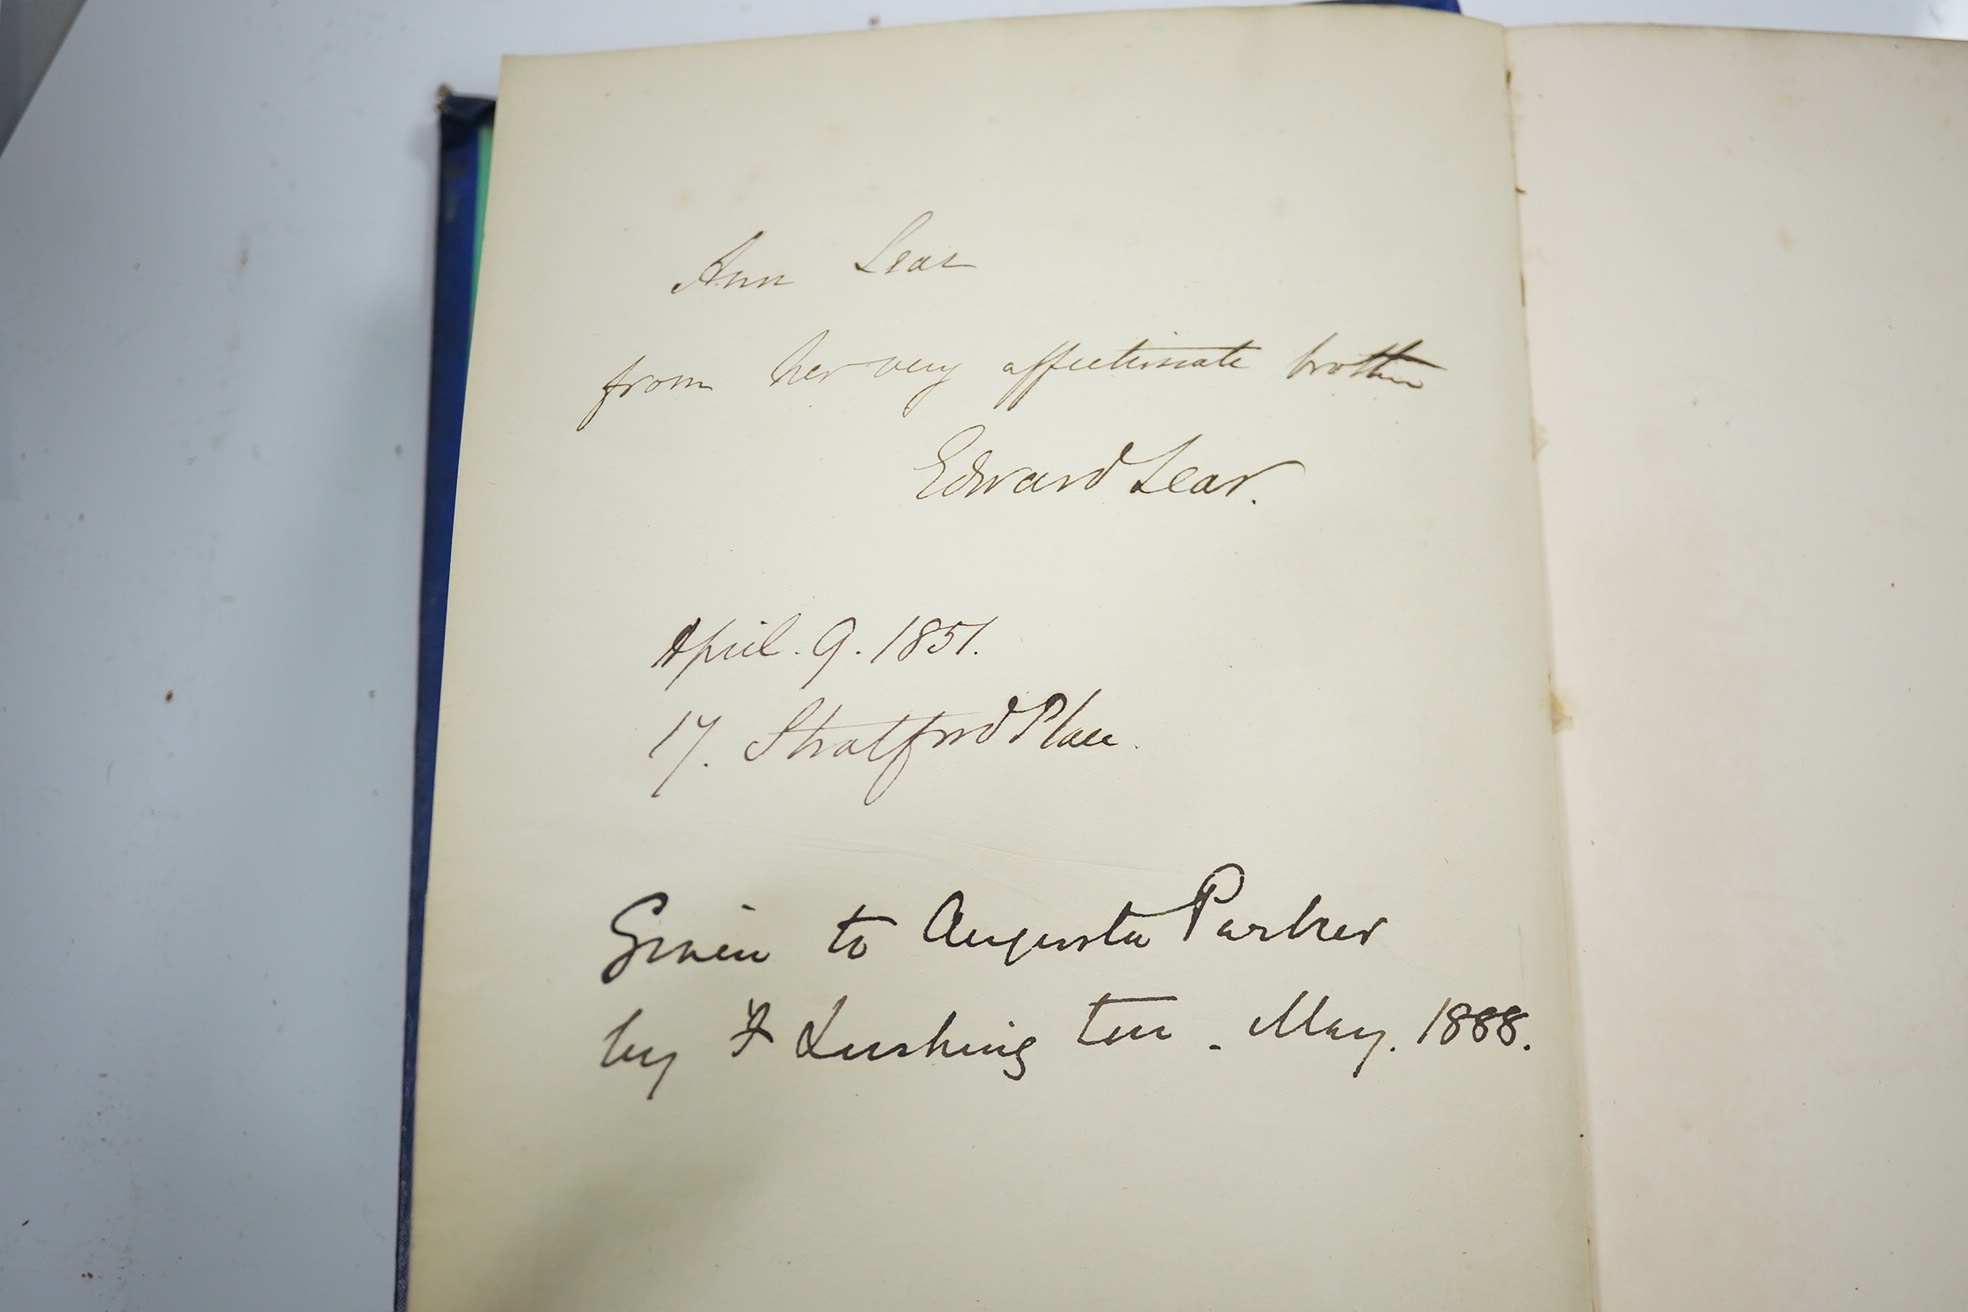 Ann Lear
from her very affectionate brother
Edward Lear.
April. 9. 1851.
17. Stratford Place.
Given to Augusta Parker
by F Lushington. May. 1888.